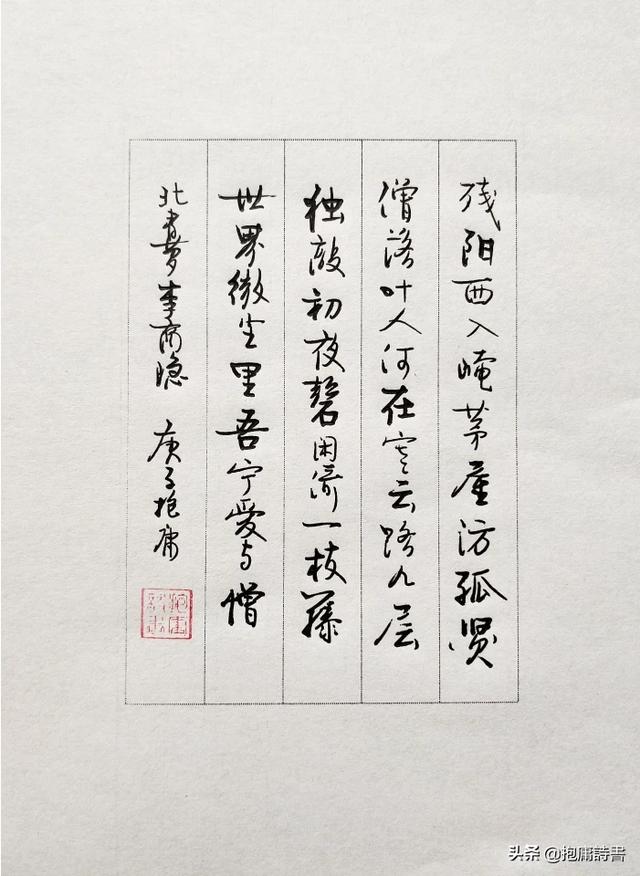 残阳西入崦茅屋访孤
僧落叶人何在寒云路几层
独敲初夜磬闲倚一枝藤
世界微尘里吾宁爱与憎
北青萝李商隐 庚子抱庸
头条 @抱庸詩書